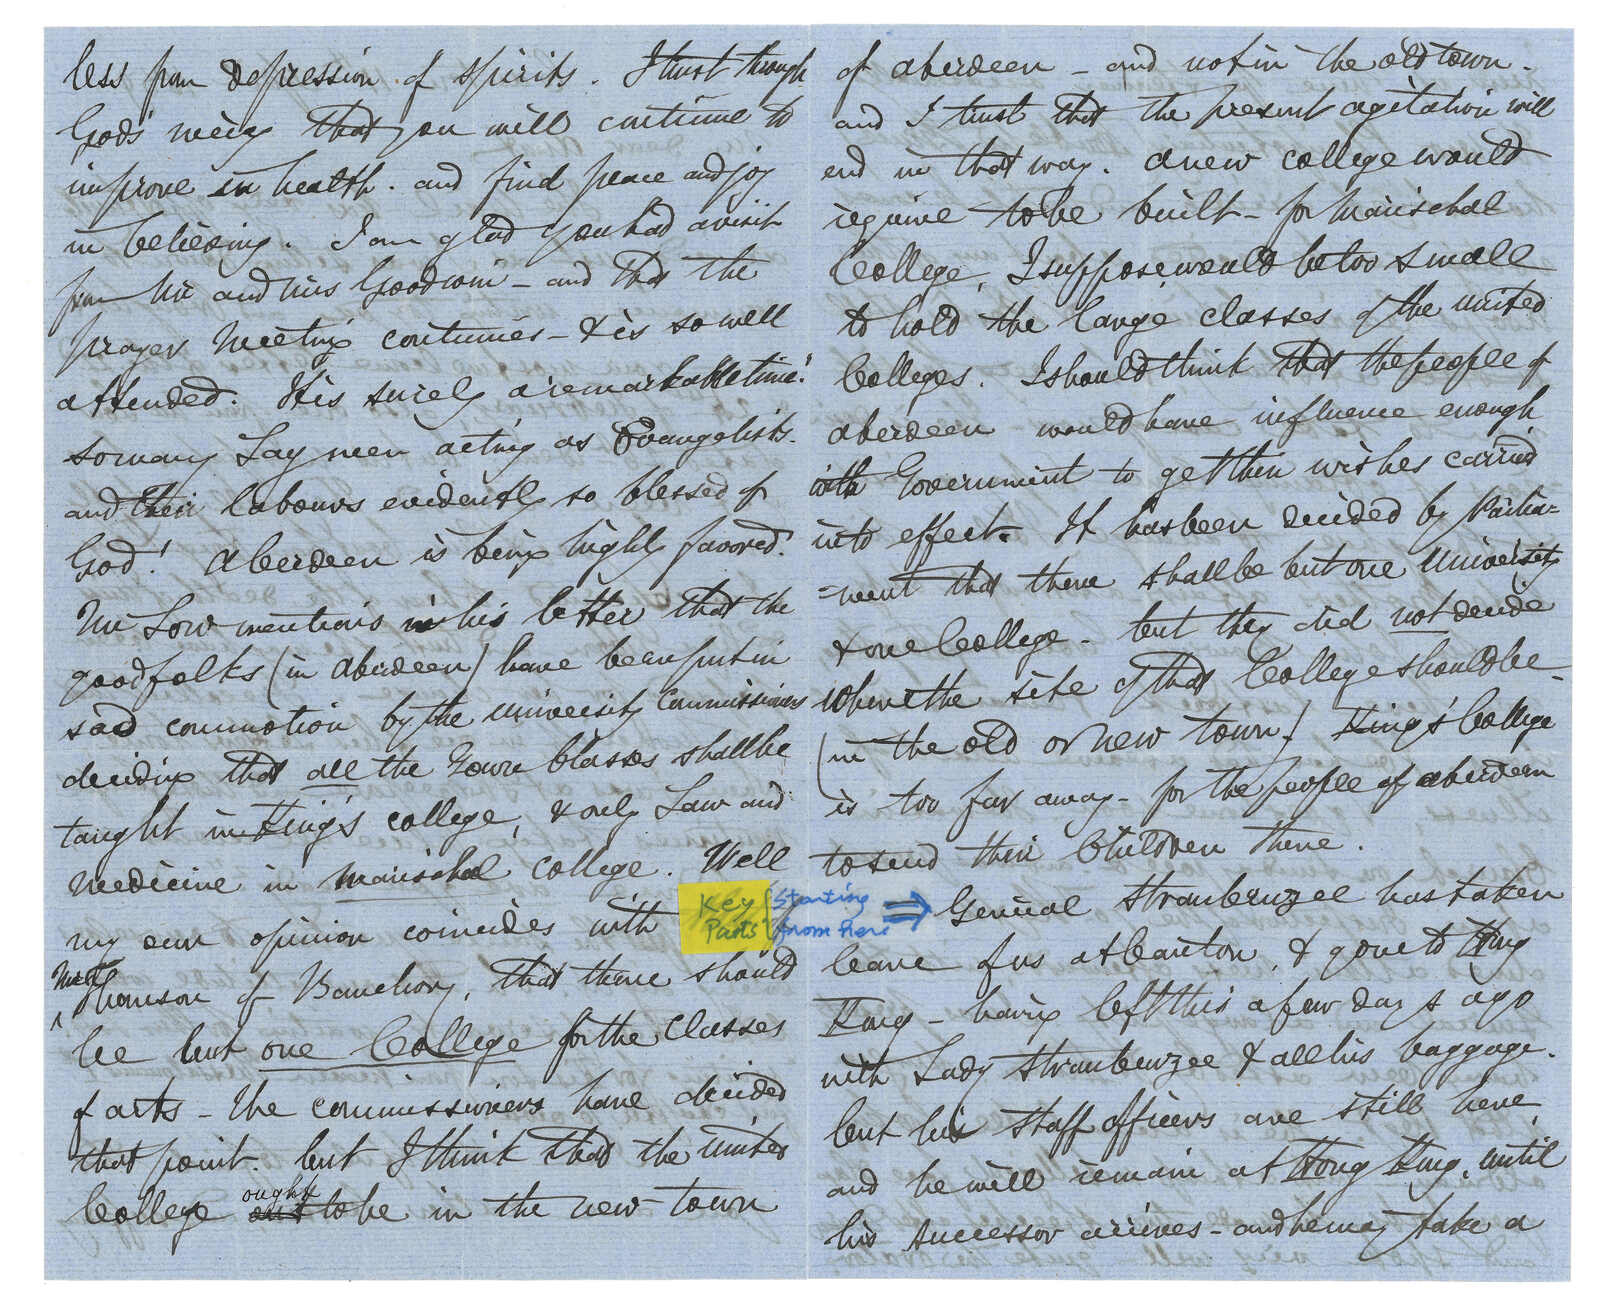 less from depression of spirits. I trust through
God's mercy that you will continue to
improve in health. and find peace and joy
in believing. I am glad you had a visit
from Mr and Mrs Goodwin - and that the
prayer meeting continues - & is so well
attended. It is surely a remarkable time!
so many Lay men acting as Evangelists.
and their labours evidently so blessed of
God! Aberdeen is being highly favored.
Mr Low mentions in his letter that the
good folks (in Aberdeen) have been put in
sad commotion by the University Commissioners
deciding that all the Gown Classes shall be
taught in King's college, & only Law and
medicine in Marischal college. Well
my own opinion coincides with
Thomson of Banchory, that there should
be but one College for the classes
of arts - the commissioners have decided
that point. but I think that the united
College ought to be in the new town
of Aberdeen - and not in the old town.
and I trust that the present agitation will
end in that way. A new college would
require to be built - for Marischal
College, I suppose would be too small
to hold the large classes of the united
Colleges. I should think that the people of
Aberdeen would have influence enough
with Government to get their wishes carried
into effect. It has been decided by Parlia=
=ment that there shall be but one University
& one College - but they did not decide
where the site of that College should be -
(in the old or new town.) King's College
is too far away - for the people of Aberdeen
to send their Children there.
Key Parts
Starting from here
General Straubenzee has taken
leave of us at Canton, & gone to Hong
Kong - having left this a few days ago
with Lady Straubenzee & all his baggage.
but his staff officers are still here,
and he will remain at Hong Kong, until
his successor arrives - and he may take a